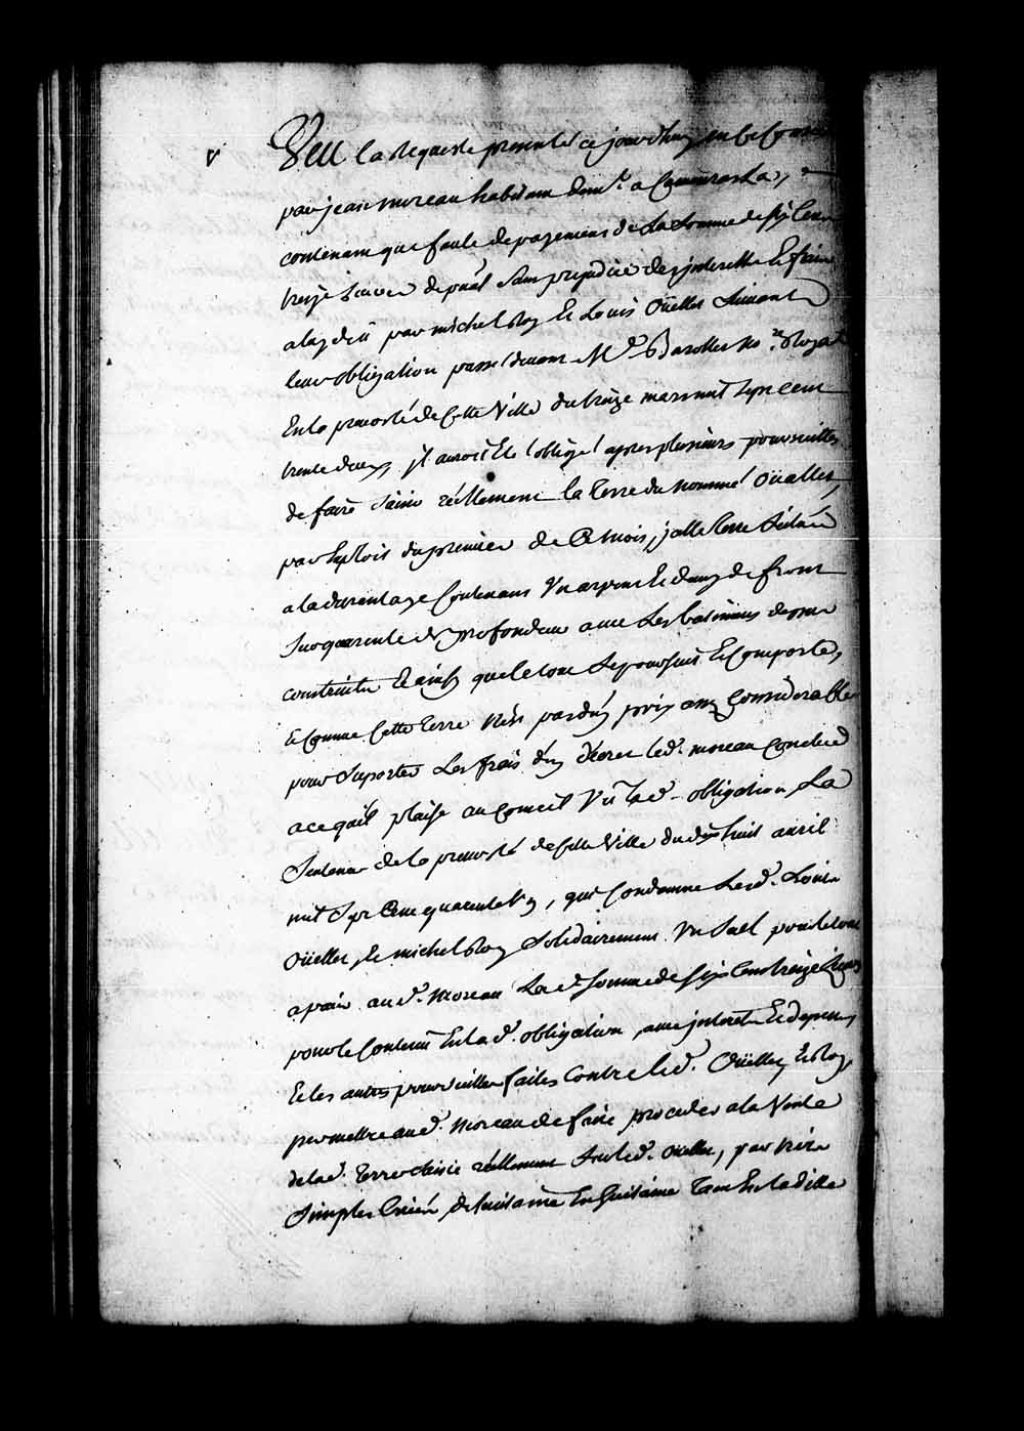 Veu la Requeste presentée ce jourd'huy en ce Conseil
par jean moreau habitant dem.t a Camouraska,
contenant que faute de payement de La Somme de six Cent
treize Livres depual Sans prejudice des jnterests Et frais
a luy deü par michel Roy Et Louis Oüellet Suivant
leur obligation passé devant M.e Barolet No.re Royal
En la prevosté de Cette Ville du treize mars mil Sept cent
trente deux, jl auroit Eté obligé apres plusieurs poursuittes
de faire Saisir réellement la Terre du nommé Oüellet,
par Exploit du premier de Ce mois, jcelle terre Scituée
a la durantaye Contenant Un arpent Et demy de front
Sur quarente de profondeur avec Les batimens dessus
construits Et ainsy que le tout Se poursuit Et Comporte,
Et Comme Cette terre n'est pas d'un prix assez Considerable
pour Suporter Les frais d'un decret led. moreau Conclud
a ce qu'il plaise au Conseil Vû lad. obligation La
Sentence de la prevosté de Cette Ville du dix huit avril
mil Sept Cent quarente Un, qui Condamne Lesd. Loüis
Oüellet, Et michel Roy Solidairement Un Seul pour le tout
a païer aud. Moreau La d. Somme de six Cens treize Livres
pour le Contenu En lad. obligation, avec jnterets Et depens,
Et les autres poursuittes faites Contre lesd. Oüellet, Et Roy,
permettre aud. Moreau de faire proceder a la Vente
de lad. terre Saisie réellement Sur led. Oüellet, par trois
Simples Criées de huitaine En huitaine tant En lad. Ville